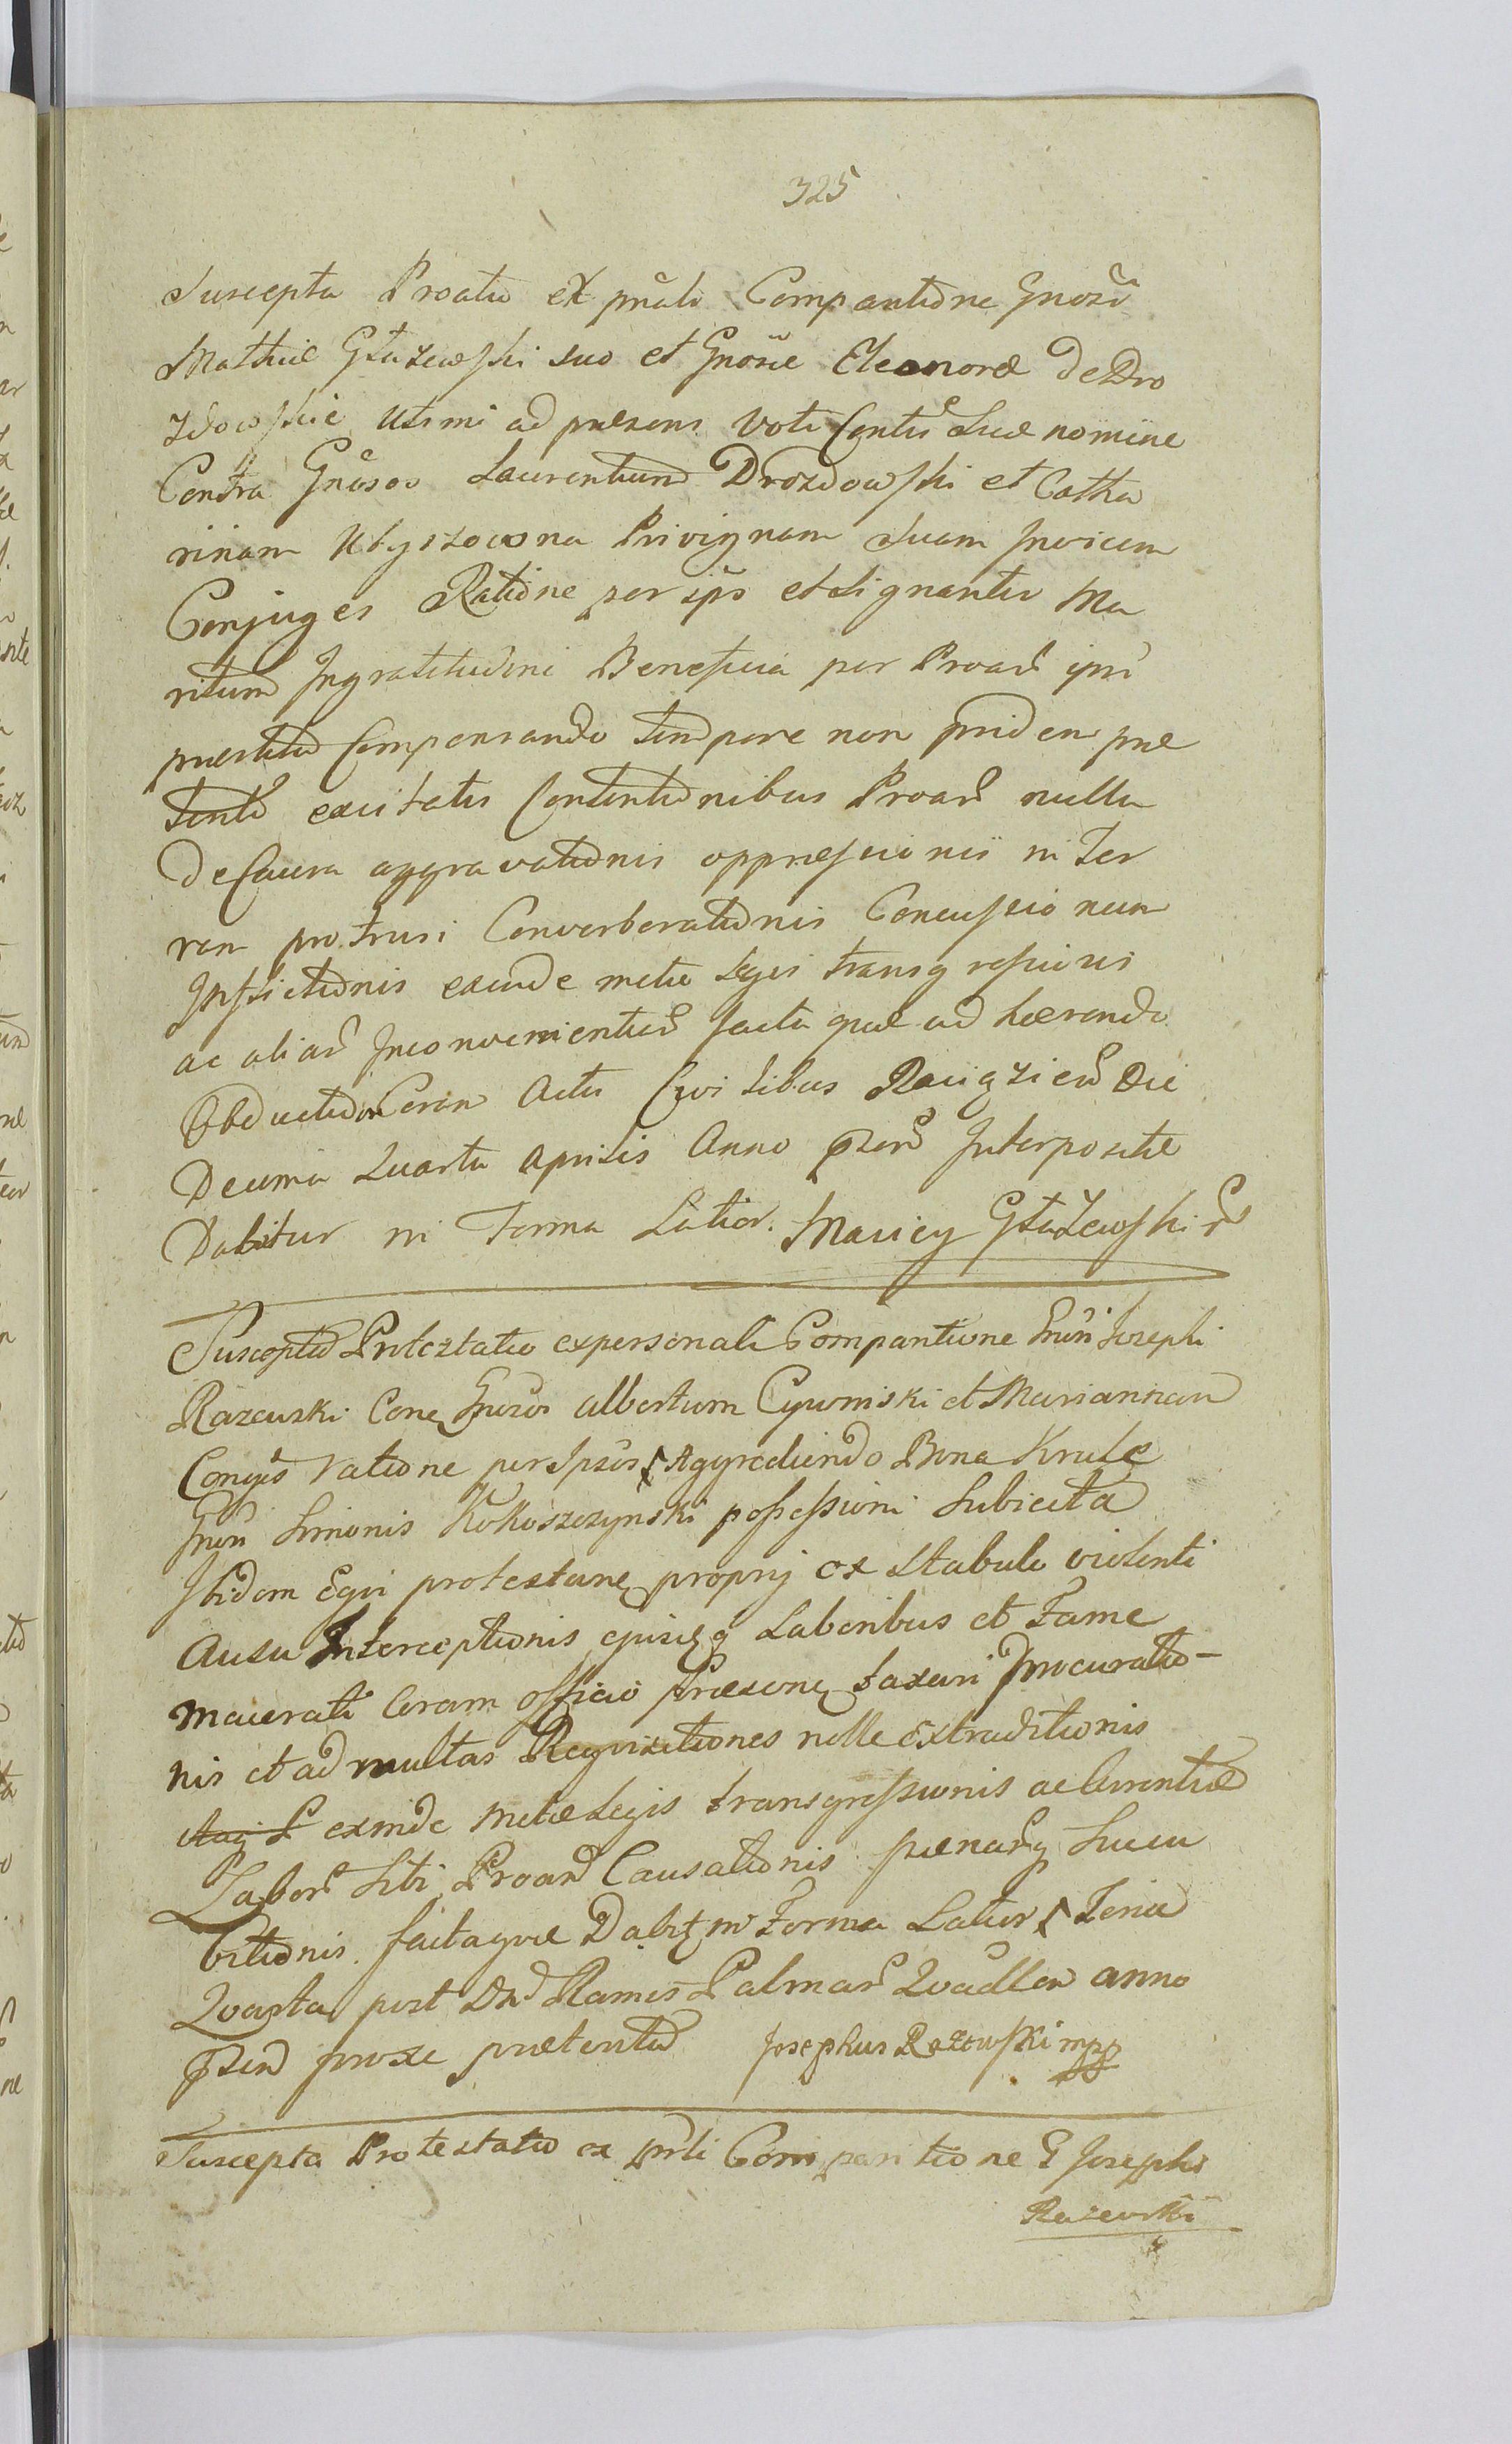 325
Suscepta Proatio ex pnäli Comparitione Gnosi
Mathiæ Głażewski suo et Gnosæ Eleonoræ de Dro
zdowskie ultimi ad præsens voti Contlis suæ nomine
Contra Gnosos Laurentium Drozdowski et Catha
rinam Privignam suam Invicem
Conjuges Ratione per ipsos et signanter Ma
ritum Ingratitudini Beneficia per Proan ipsi
præstita Compensando tempore non pridem præ
terito excitatis Contentionibus Proan nulla
de Causa aggravationis oppressionis in Ter
ram protrusi Converberationis Concussionum
Inflictionis exinde metæ Legis transgressionis
ac aliar Inconvenientiar facta quæ ad hærendo
Obductioni Coram Actis Civilibus Raiigzien Die
Decima Quarta Aprilis Anno qsen Interpositæ
Dabitur in Forma Latior. Maciey Głażewski
Suscepta Protestatio ex personali Comparitione Gnsi Josephi
Razewski Con Gnosos Albertum Cywinski et Mariannam
Conges ratione per Ipsos Aggrediendo Bona Krule
Gnsi Simonis Kokoszczynski possessioni Subiecta
Ibidem Eqvi protestanę proprij ex Stabulo violenti
Ausu Interceptionis ejusq Laboribus et Fame
macerati Coram officio præsenę taxari procuratio-
nis et ad multas Reqvisitiones nolle Extraditionis
exinde metæ Legis transgressionis ac Carentiæ
Labor Sibi Proan Causationis pænarq Succu
bitionis. factaqvæ Dabit in Forma Latior Feria
Qvarta post Dn Ramis Palmar Qvadlem anno
qsen proxe præterita Josephus Rażewski mpp
Suscepta Protestatio ex prli Comparitione G Josephi
Razewski